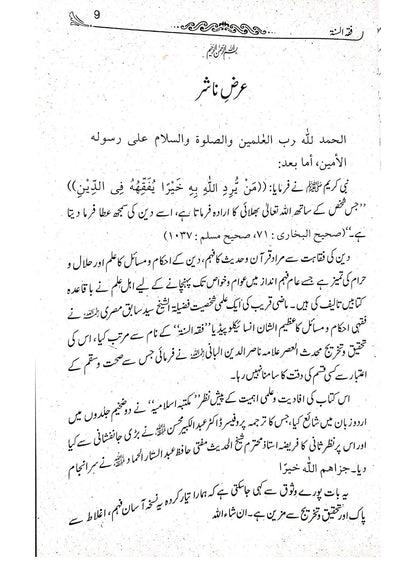 فقہ السنۃ 9
بسم اللہ الرحمن الرحیم
عرضِ ناشر
الحمد للّٰہ رب العٰلمین والصلٰوۃ والسلام علی رسولہ
الأمین، أما بعد:
نبی کریم ﷺ نے فرمایا: ((مَنْ يُّرِدِ اللّٰهُ بِهٖ خَيْرًا يُّفَقِّهْهُ فِي الدِّيْنِ))
”جس شخص کے ساتھ اللہ تعالیٰ بھلائی کا ارادہ فرماتا ہے، اسے دین کی سمجھ عطا فرما دیتا
ہے۔“ (صحیح البخاری : ۷۱، صحیح مسلم : ۱۰۳۷)
دین کی فقاہت سے مراد قرآن و حدیث کا فہم، دین کے احکام و مسائل کا علم اور حلال و
حرام کی تمیز ہے جسے عام فہم انداز میں عوام و خواص تک پہنچانے کے لیے اہل علم نے باقاعدہ
کتابیں تالیف کی ہیں۔ ماضی قریب کی ایک علمی شخصیت فضیلۃ الشیخ سید سابق مصری رحمہ اللہ نے
فقہی احکام و مسائل کا عظیم الشان انسائیکلوپیڈیا ”فقہ السنۃ“ کے نام سے مرتب کیا، اس کی
تحقیق و تخریج محدث العصر علامہ ناصر الدین البانی رحمہ اللہ نے فرمائی جس سے صحت و سقم کے
اعتبار سے کسی قسم کی دقت کا سامنا نہیں رہا۔
اس کتاب کی افادیت و علمی اہمیت کے پیش نظر ”مکتبہ اسلامیہ“ نے دو ضخیم جلدوں میں
اردو زبان میں شائع کیا، جس کا ترجمہ پروفیسر ڈاکٹر عبدالکبیر محسن رحمہ اللہ نے بڑی جانفشانی سے کیا
اور اس پر نظر ثانی کا فریضہ استاذ محترم شیخ الحدیث مفتی حافظ عبدالستار الحماد رحمہ اللہ نے سرانجام
دیا۔ جزاھم اللّٰہ خیرًا
یہ بات پورے وثوق سے کہی جاسکتی ہے کہ ہمارا تیار کردہ یہ نسخہ آسان فہم، اغلاط سے
پاک اور تحقیق و تخریج سے مزین ہے۔ ان شاء اللہ